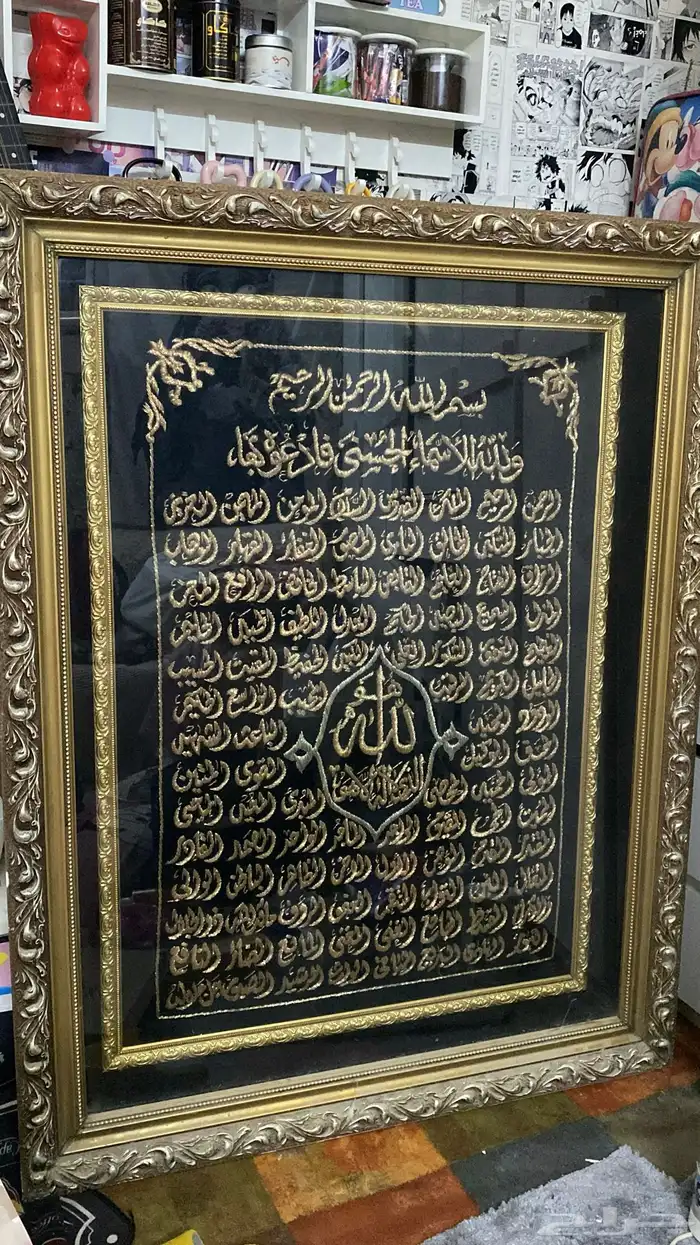 TEA
بسم الله الرحمن الرحيم
ولله الأسماء الحسنى فادعوه بها
الرحمن الرحيم الملك القدوس السلام المؤمن المهيمن العزيز
الجبار المتكبر الخالق البارئ المصور الغفار القهار الوهاب
الرزاق الفتاح العليم القابض الباسط الخافض الرافع المعز
المذل السميع البصير الحكم العدل اللطيف الخبير الحليم
العظيم الغفور الشكور العلي الكبير الحفيظ المقيت الحسيب
الجليل الكريم الرقيب المجيب الواسع الحكيم
الودود المجيد الباعث الشهيد
الحق الوكيل القوي المتين
الولي الحميد المحصي المبدئ المعيد المحيي
الله
المميت الحي القيوم الواجد الماجد الواحد الصمد القادر
المقتدر المقدم المؤخر الأول الآخر الظاهر الباطن الوالي
المتعال البر التواب المنتقم العفو الرؤوف مالك الملك ذو الجلال
والإكرام المقسط الجامع الغني المغني المانع الضار النافع
النور الهادي البديع الباقي الوارث الرشيد الصبور
حراج